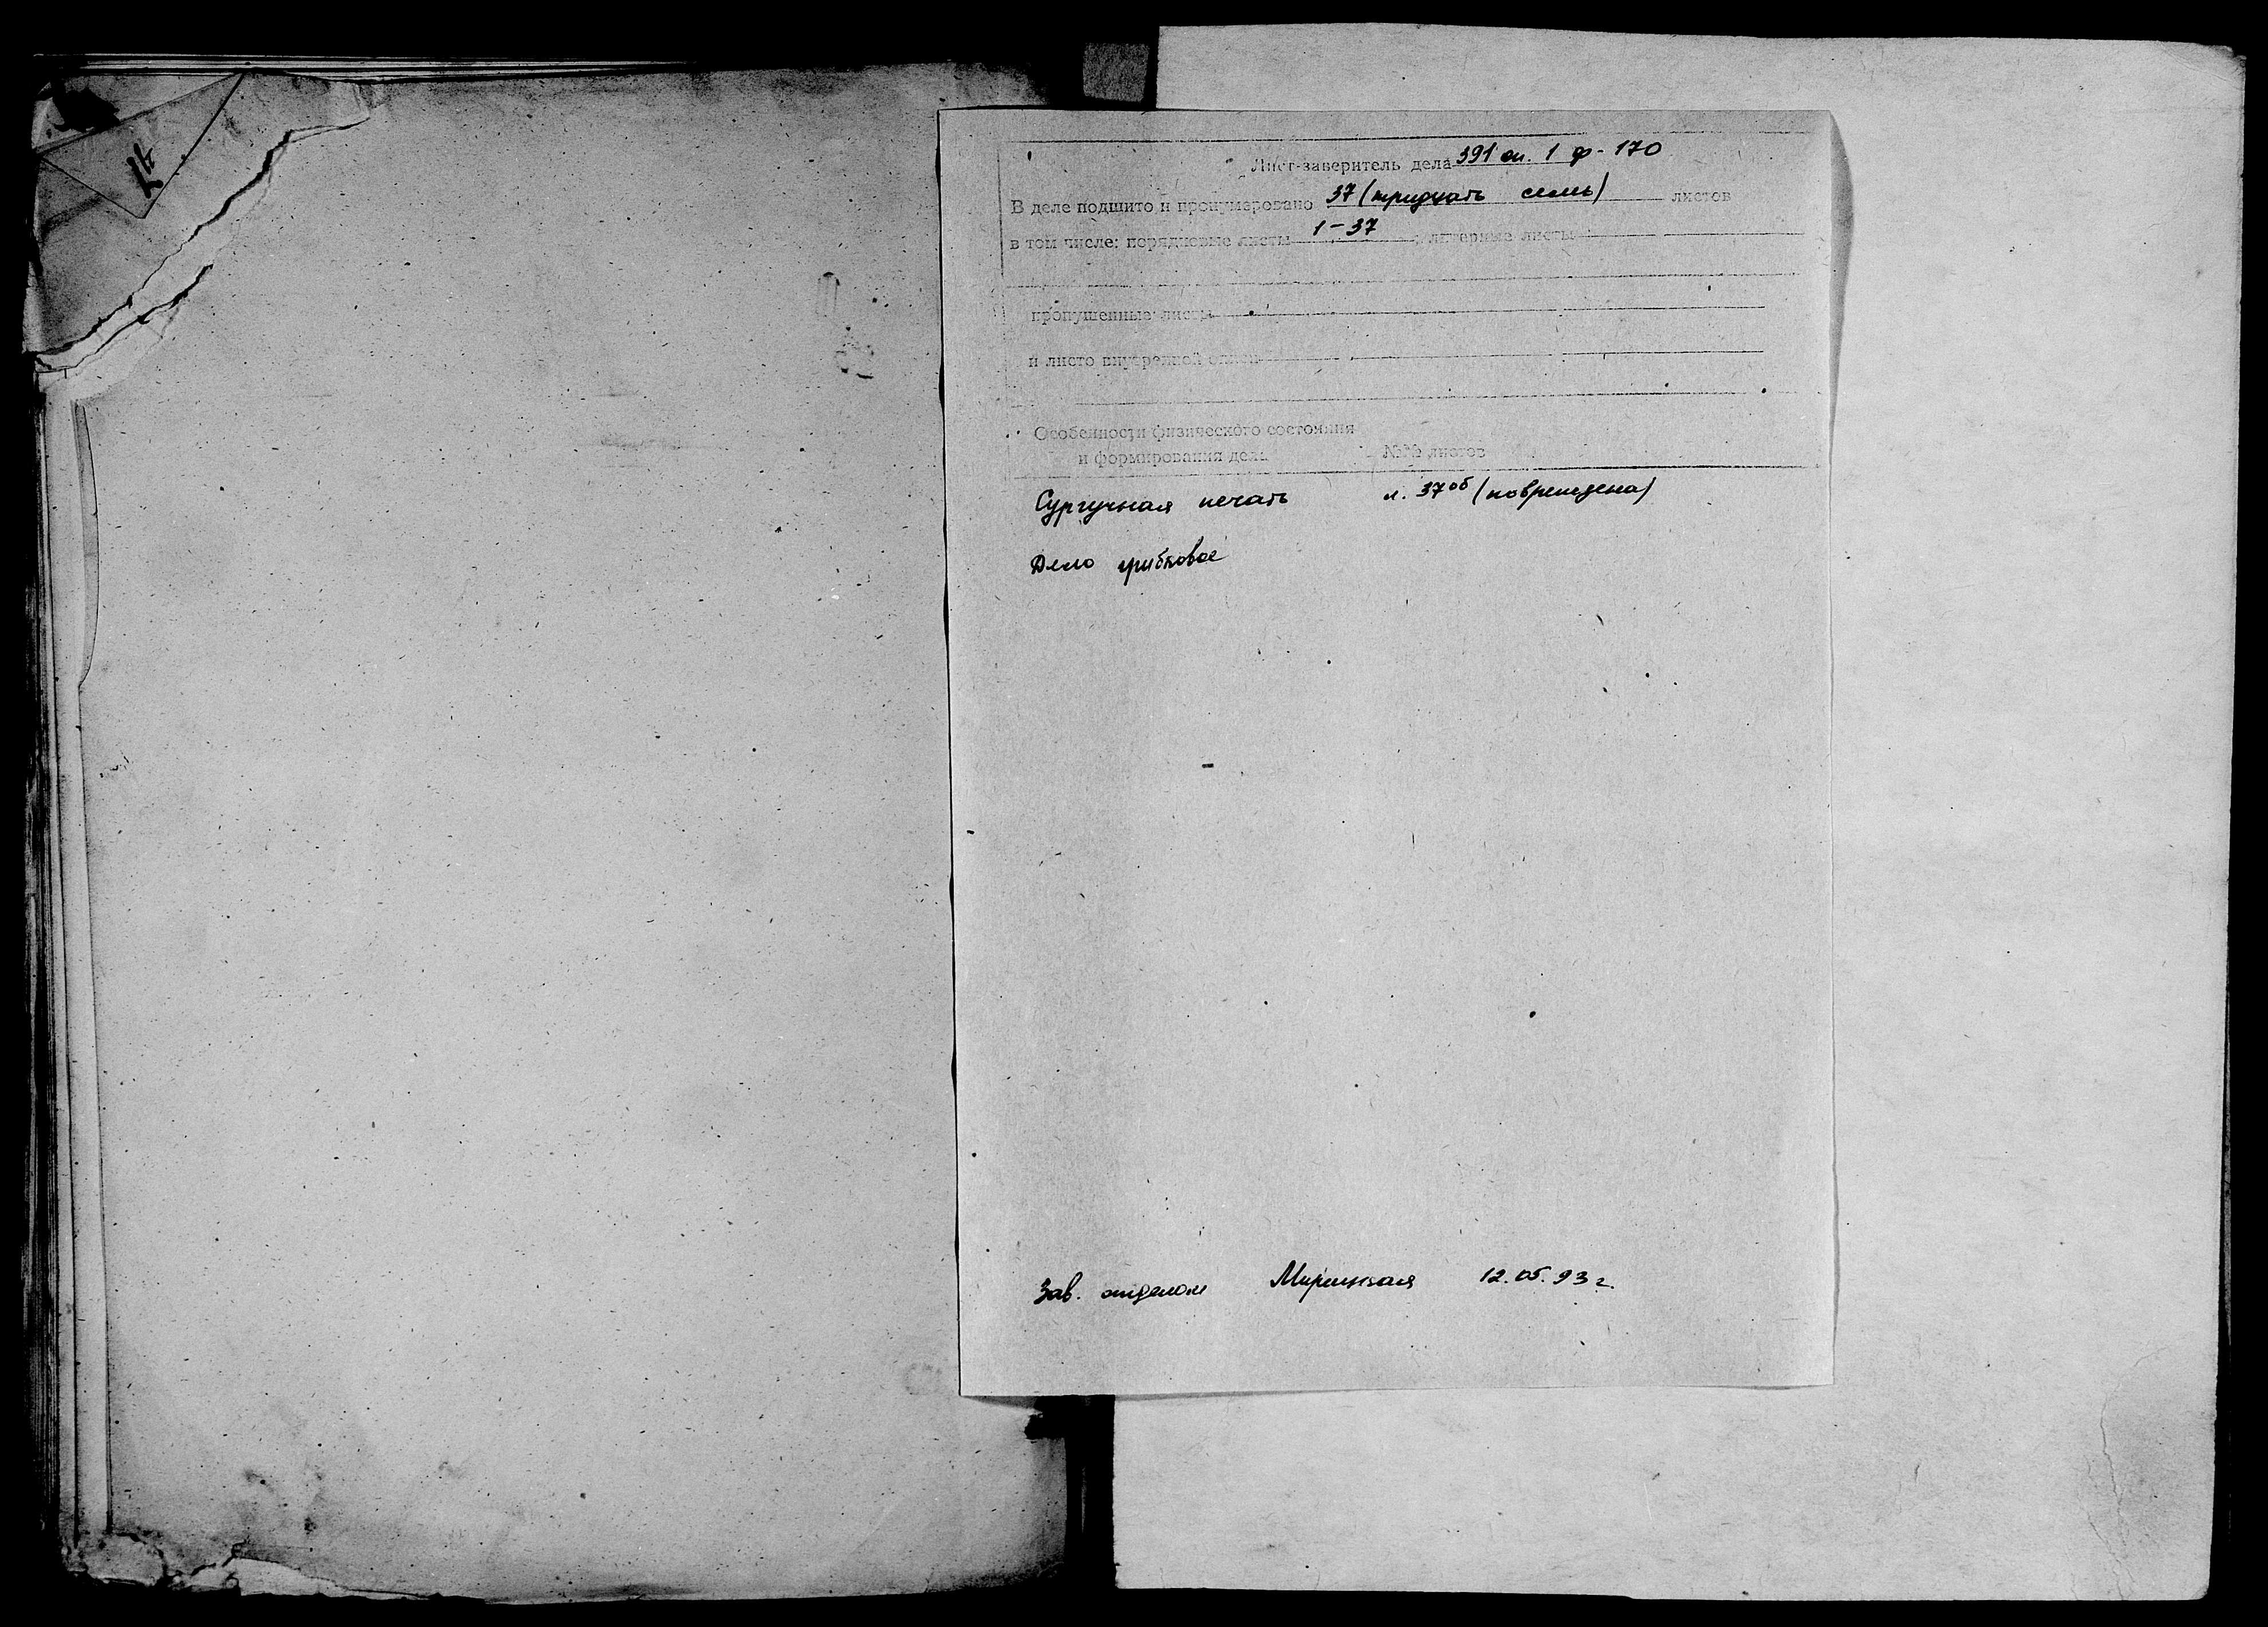 Лист-заверитель дела 391 оп. 1 ф-170
В деле подшито и пронумеровано 37 (тридцать семь) листов
в том числе: порядковые листы 1-37 ; литерные листы
пропушенные листы
и листо внутренной описи
Особенности физического состояния
и формирования дела №№ листов
Сургучная печать л. 37об (повреждена)
Дело грибковое
Зав. отделом 12.05.93 г.